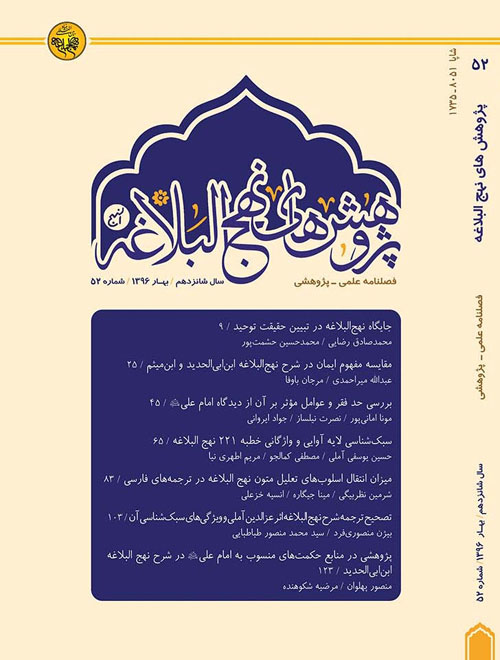 پژوهش های نهج البلاغه
فصلنامه علمی ـ پژوهشی
سال شانزدهم / بهار ۱۳۹۶ / شماره ۵۲
جایگاه نهج‌البلاغه در تبیین حقیقت توحید / ۹
محمدصادق رضایی / محمدحسین حشمت‌پور
مقایسه مفهوم ایمان در شرح نهج‌البلاغه ابن‌ابی‌الحدید و ابن‌میثم / ۲۵
عبدالله میراحمدی / مرجان باوفا
بررسی حد فقر و عوامل مؤثر بر آن از دیدگاه امام علی / ۴۵
مونا امانی‌پور / نصرت نیلساز / جواد ایروانی
سبک‌شناسی لایه آوایی و واژگانی خطبه ۲۲۱ نهج البلاغه / ۶۵
حسین یوسفی آملی / مصطفی کمالجو / مریم اطهری نیا
میزان انتقال اسلوب‌های تعلیل متون نهج البلاغه در ترجمه‌های فارسی / ۸۳
شرمین نظربیگی / مینا جیگاره / انسیه خزعلی
تصحیح ترجمه شرح نهج‌البلاغه اثر عزالدین آملی و ویژگی‌های سبک‌شناسی آن / ۱۰۳
بیژن منصوری‌فرد / سید محمد منصور طباطبایی
پژوهشی در منابع حکمت‌های منسوب به امام علی در شرح نهج البلاغه
ابن‌ابی‌الحدید / ۱۲۳
منصور پهلوان / مرضیه شکوهنده
۵۲
شاپا ۸۰۵۱ ـ ۱۷۳۵
پژوهش های نهج البلاغه
فصلنامه علمی ـ پژوهشی
سال شانزدهم / بهار ۱۳۹۶ / شماره ۵۲